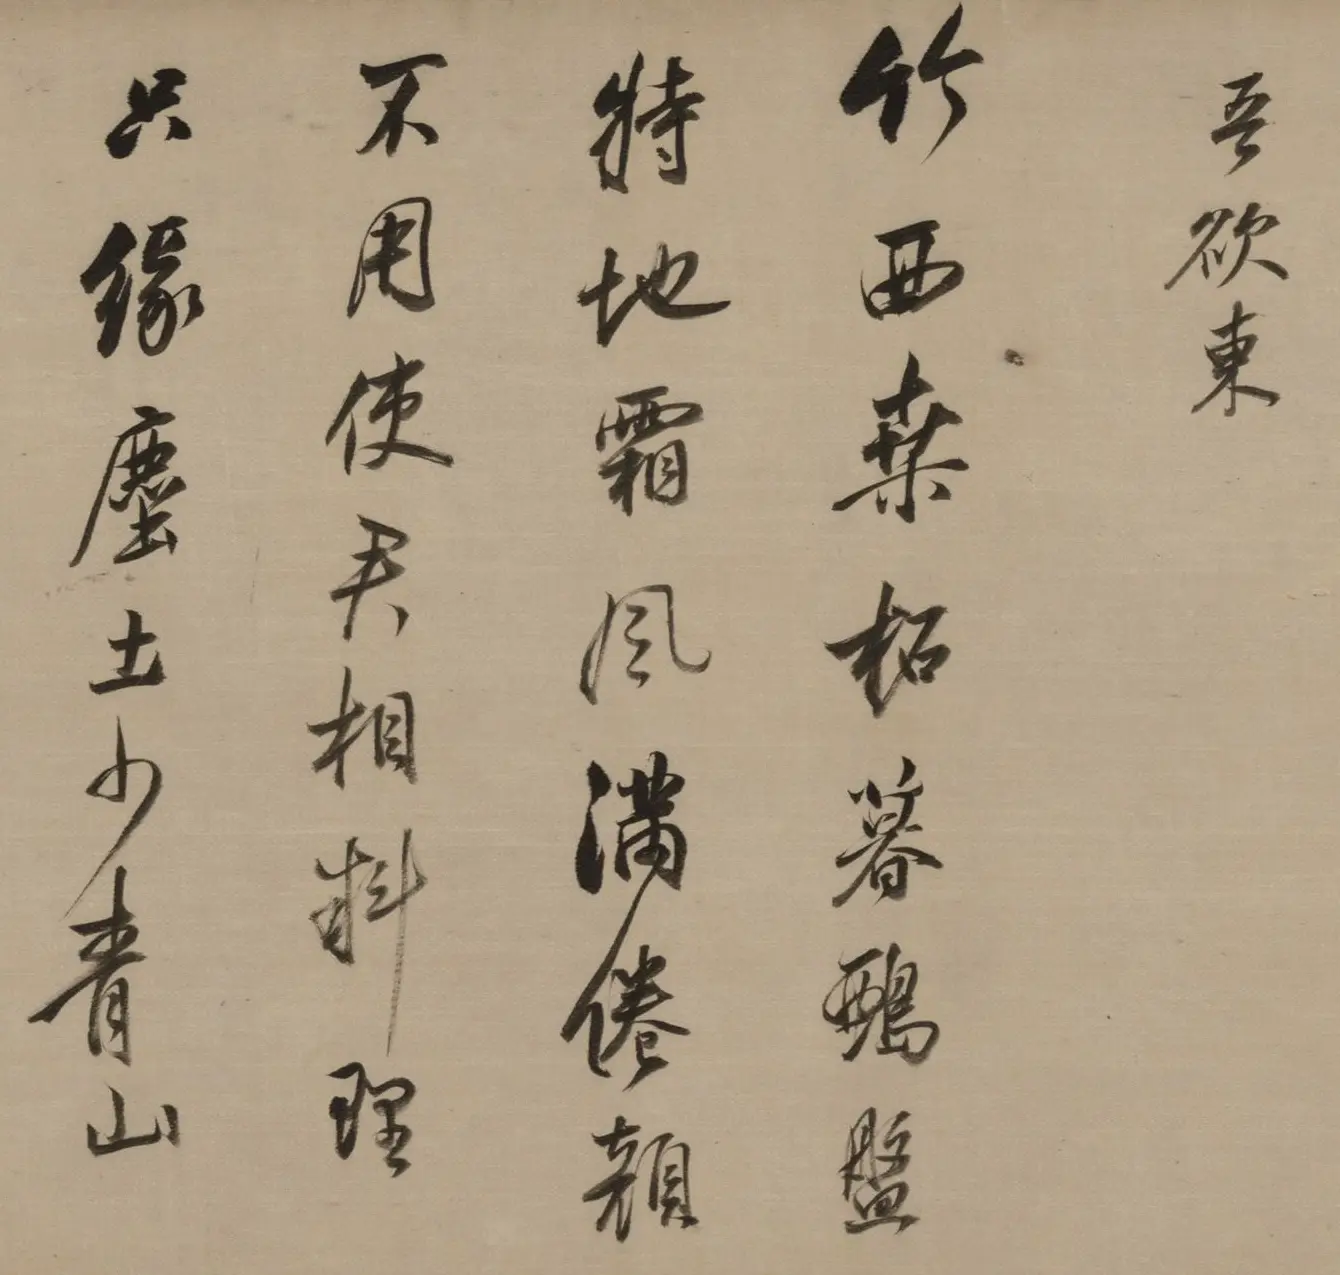 吾欲東
竹西桑柘暮鵶盤
特地霜風滿倦顔
不用使君相料理
只緣塵土少青山